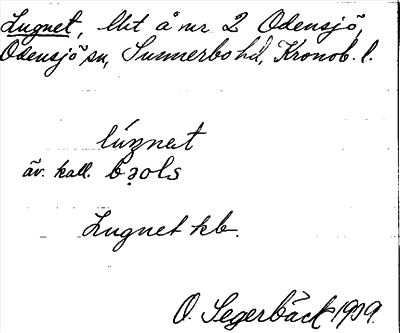 Lugnet, lht å nr 2 Odensjö,
Odensjö sn, Sunnerbo hd, Kronob. l.
lúŋnət
äv. kall. bə̣ols
Lugnet kb.
O. Segerbäck 1909.